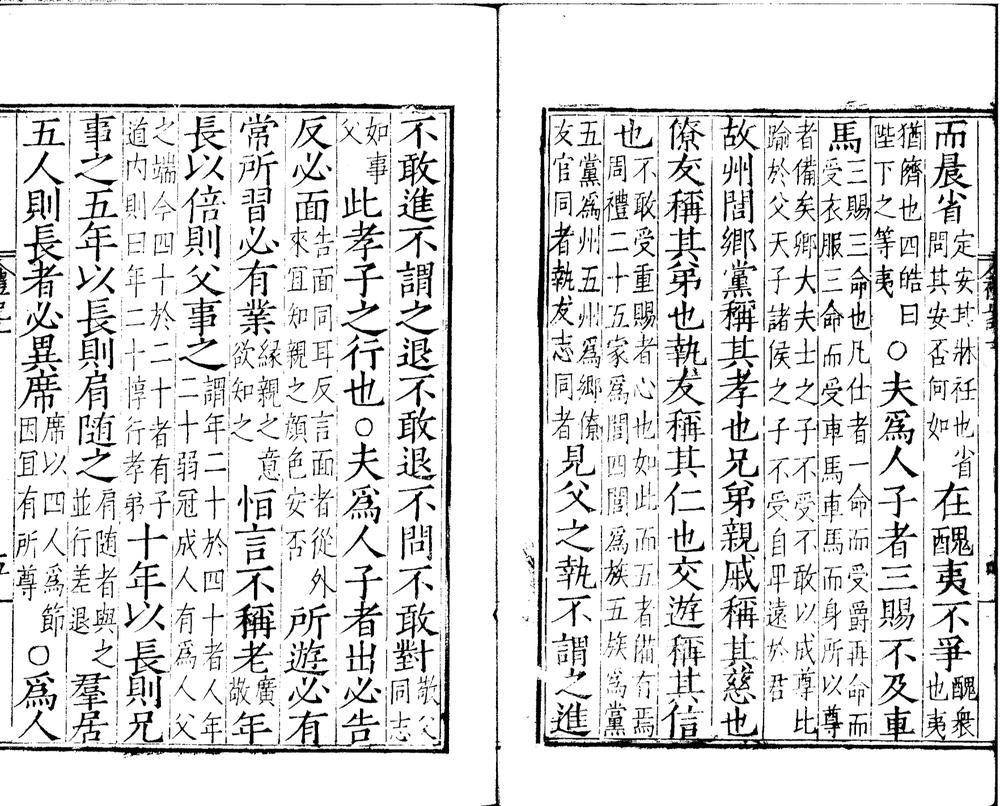 而晨省定安其牀衽也省問其安否何如在醜夷不爭醜衆也夷
猶儕也四皓曰陛下之等夷○夫爲人子者三賜不及車
馬三賜三命也凡仕者一命而受爵再命而受衣服三命而受車馬車馬而身所以尊
者備矣卿大夫士之子不受不敢以成尊比踰於父天子諸侯之子不受自卑遠於君
故州閭鄉黨稱其孝也兄弟親戚稱其慈也
僚友稱其弟也執友稱其仁也交遊稱其信
也不敢受重賜者心也如此而五者備有焉周禮二十五家爲閭四閭爲族五族爲黨
五黨爲州五州爲鄉僚友官同者執友志同者見父之執不謂之進
不敢進不謂之退不敢退不問不敢對敬父同志
如事父此孝子之行也○夫爲人子者出必告
反必面告面同耳反言面者從外來宜知親之顏色安否所遊必有
常所習必有業緣親之意欲知之恒言不稱老廣敬年
長以倍則父事之謂年二十於四十者人年二十弱冠成人有爲人父
之端今四十於二十者有子道内則曰年二十惇行孝弟十年以長則兄
事之五年以長則肩随之肩随者與之並行差退羣居
五人則長者必異席席以四人爲節因宜有所尊○爲人